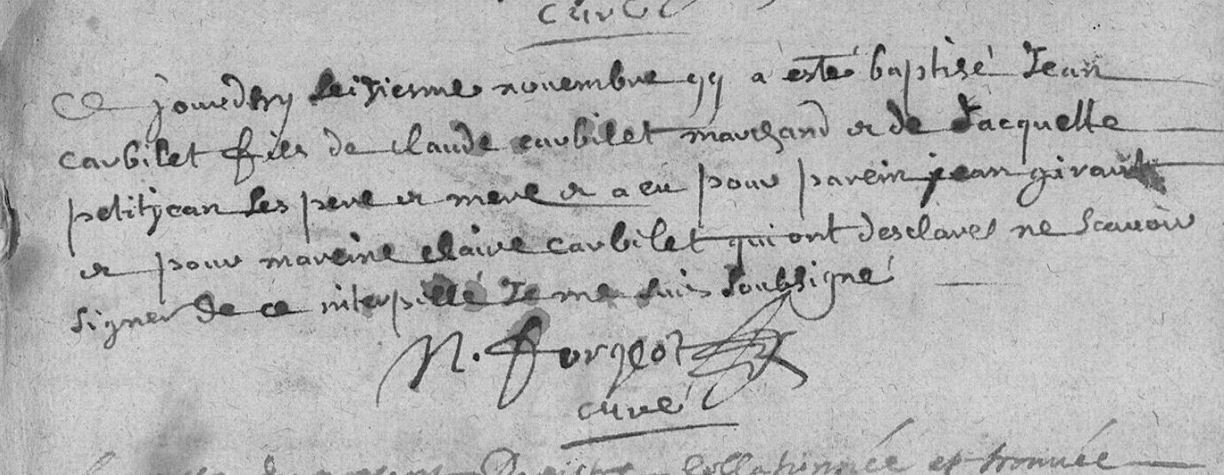 curé
Ce jourdhuy seiziesme novembre 99 a esté baptisé Jean
caubilet fils de claude caubilet marchand et de Jacquette
petitjean ses pere et mere et a eu pour parein jean girault
et pour mareine claire caubilet qui ont desclarés ne scavoir
signer de ce interpellé Je me suis soubsigné
N. forgeot
curé
Collationnée et trouvée